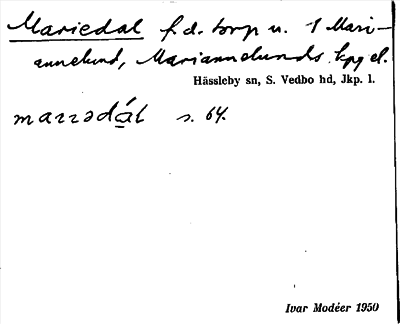 Mariedal f.d. torp u. 1 Mari-
annelund, Mariannelunds kpg el.
Hässleby sn, S. Vedbo hd, Jkp. l.
marrədál s. 64.
Ivar Modéer 1950